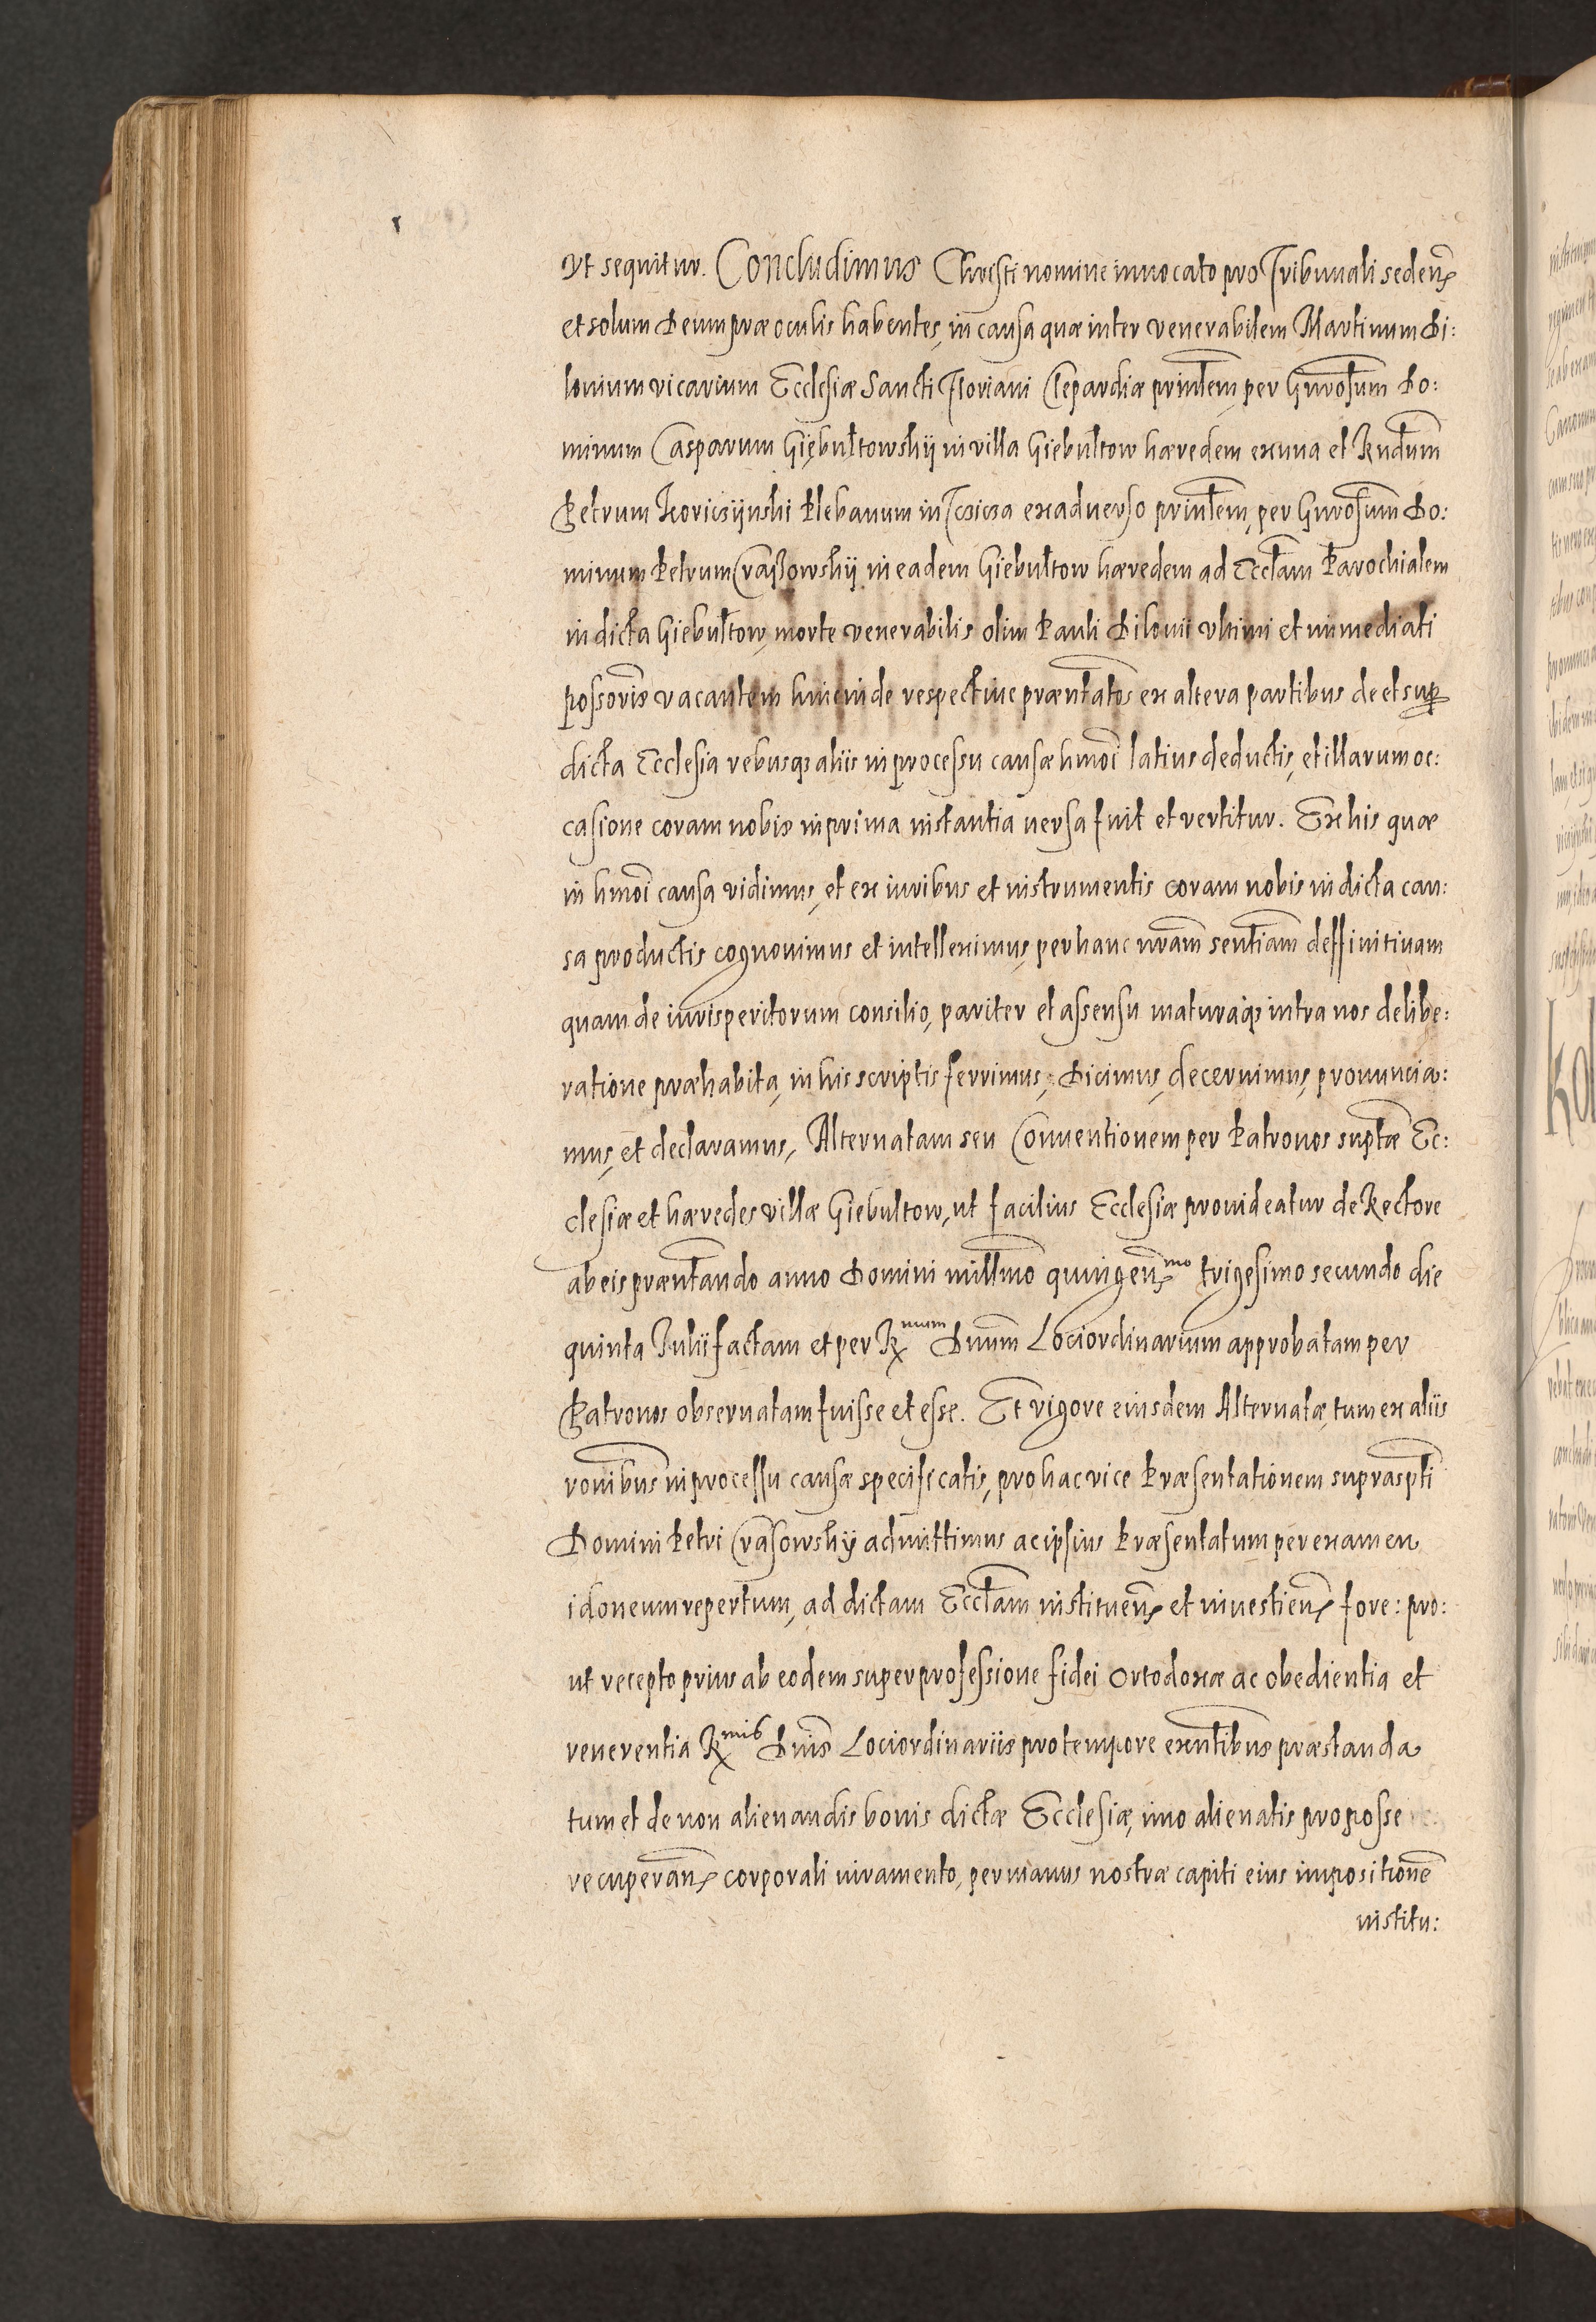 Vt sequitur. Concludimus Christi nomine inuocato pro Tribunali seden̄
et solum Deum præ oculis habentes, in causa quæ inter venerabilem Martinum Di:
lonium vicarium Ecclesiæ Sancti Floriani Clepardiæ prin̄tem, per Gn̄rosum Do:
minum Casparum Giębułtowskÿ in villa Giebułtow hæredem ex una et R̄ndum
Petrum Koricsÿnski Plebanum in ex aduerso prin̄tem, per Gn̄rosum Do:
minum Petrum Crassowskÿ in eadem Giebułtow hæredem ad Eccl̄am Parochialem
in dicta Giebułtow, morte venerabilis olim Pauli Dilonii vltimi et immediati
possoris̄ vacantem hincinde respectiue præn̄tatos ex altera partibus de et sup
dicta Ecclesia rebusq3 aliis in processu causæ hmōi latius deductis, et illarum oc:
casione coram nobis in prima instantia uersa fuit et vertitur. Ex his quæ
in hmōi causa vidimus, et ex iuribus et instrumentis coram nobis in dicta cau:
sa productis cognouimus et intelleximus, per hanc nr̄am sent̄iam deffinitiuam
quam de iurisperitorum consilio, pariter et assensu maturaq3 intra nos delibe:
ratione præhabita, in his scriptis ferrimus, Dicimus, decernimus, pronuncia:
mus, et declaramus, Alternatam seu Conuentionem per Patronos sup̄tæ Ec:
clesiæ et hæredes villæ Giebultow, ut facilius Ecclesiæ prouideatur de Rectore
ab eis præn̄tando anno Domini mill̄mo quingen̄mo trigesimo secundo die
quinta Iulii factam et per Rmum Dn̄um Lociordinarium approbatam per
Patronos obseruatam fuisse et esse. Et vigore eiusdem Alternatæ, tum ex aliis
ron̄ibus in processu causæ specificatis, pro hac vice Præsentationem suprasp̄ti
Domini Petri Crasowskÿ admittimus ac ipsius Præsentatum per examen
idoneum repertum, ad dictam Eccl̄am instituen̄ et inuestien̄ fore: pro:
ut recepto prius ab eodem super professione fidei Ortodoxæ ac obedientia et
reuerentia Rmis Dn̄is Lociordinariis pro tempore exn̄tibus præstanda
tum et de non alienandis bonis dictæ Ecclesiæ, imo alienatis pro posse
recuperan̄ corporali iuramento, per manus nostræ capiti eius impositionē
institu: